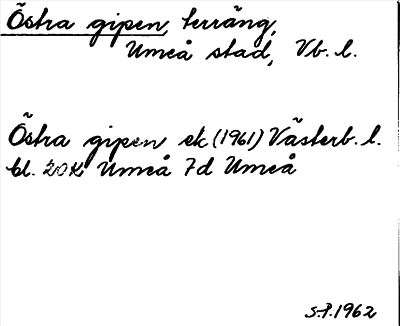 Östra gipen, terräng,
Umeå stad, Vb. l.
Östra gipen ek (1961) Västerb. l.
bl. 20K Umeå 7d Umeå
S.P. 1962